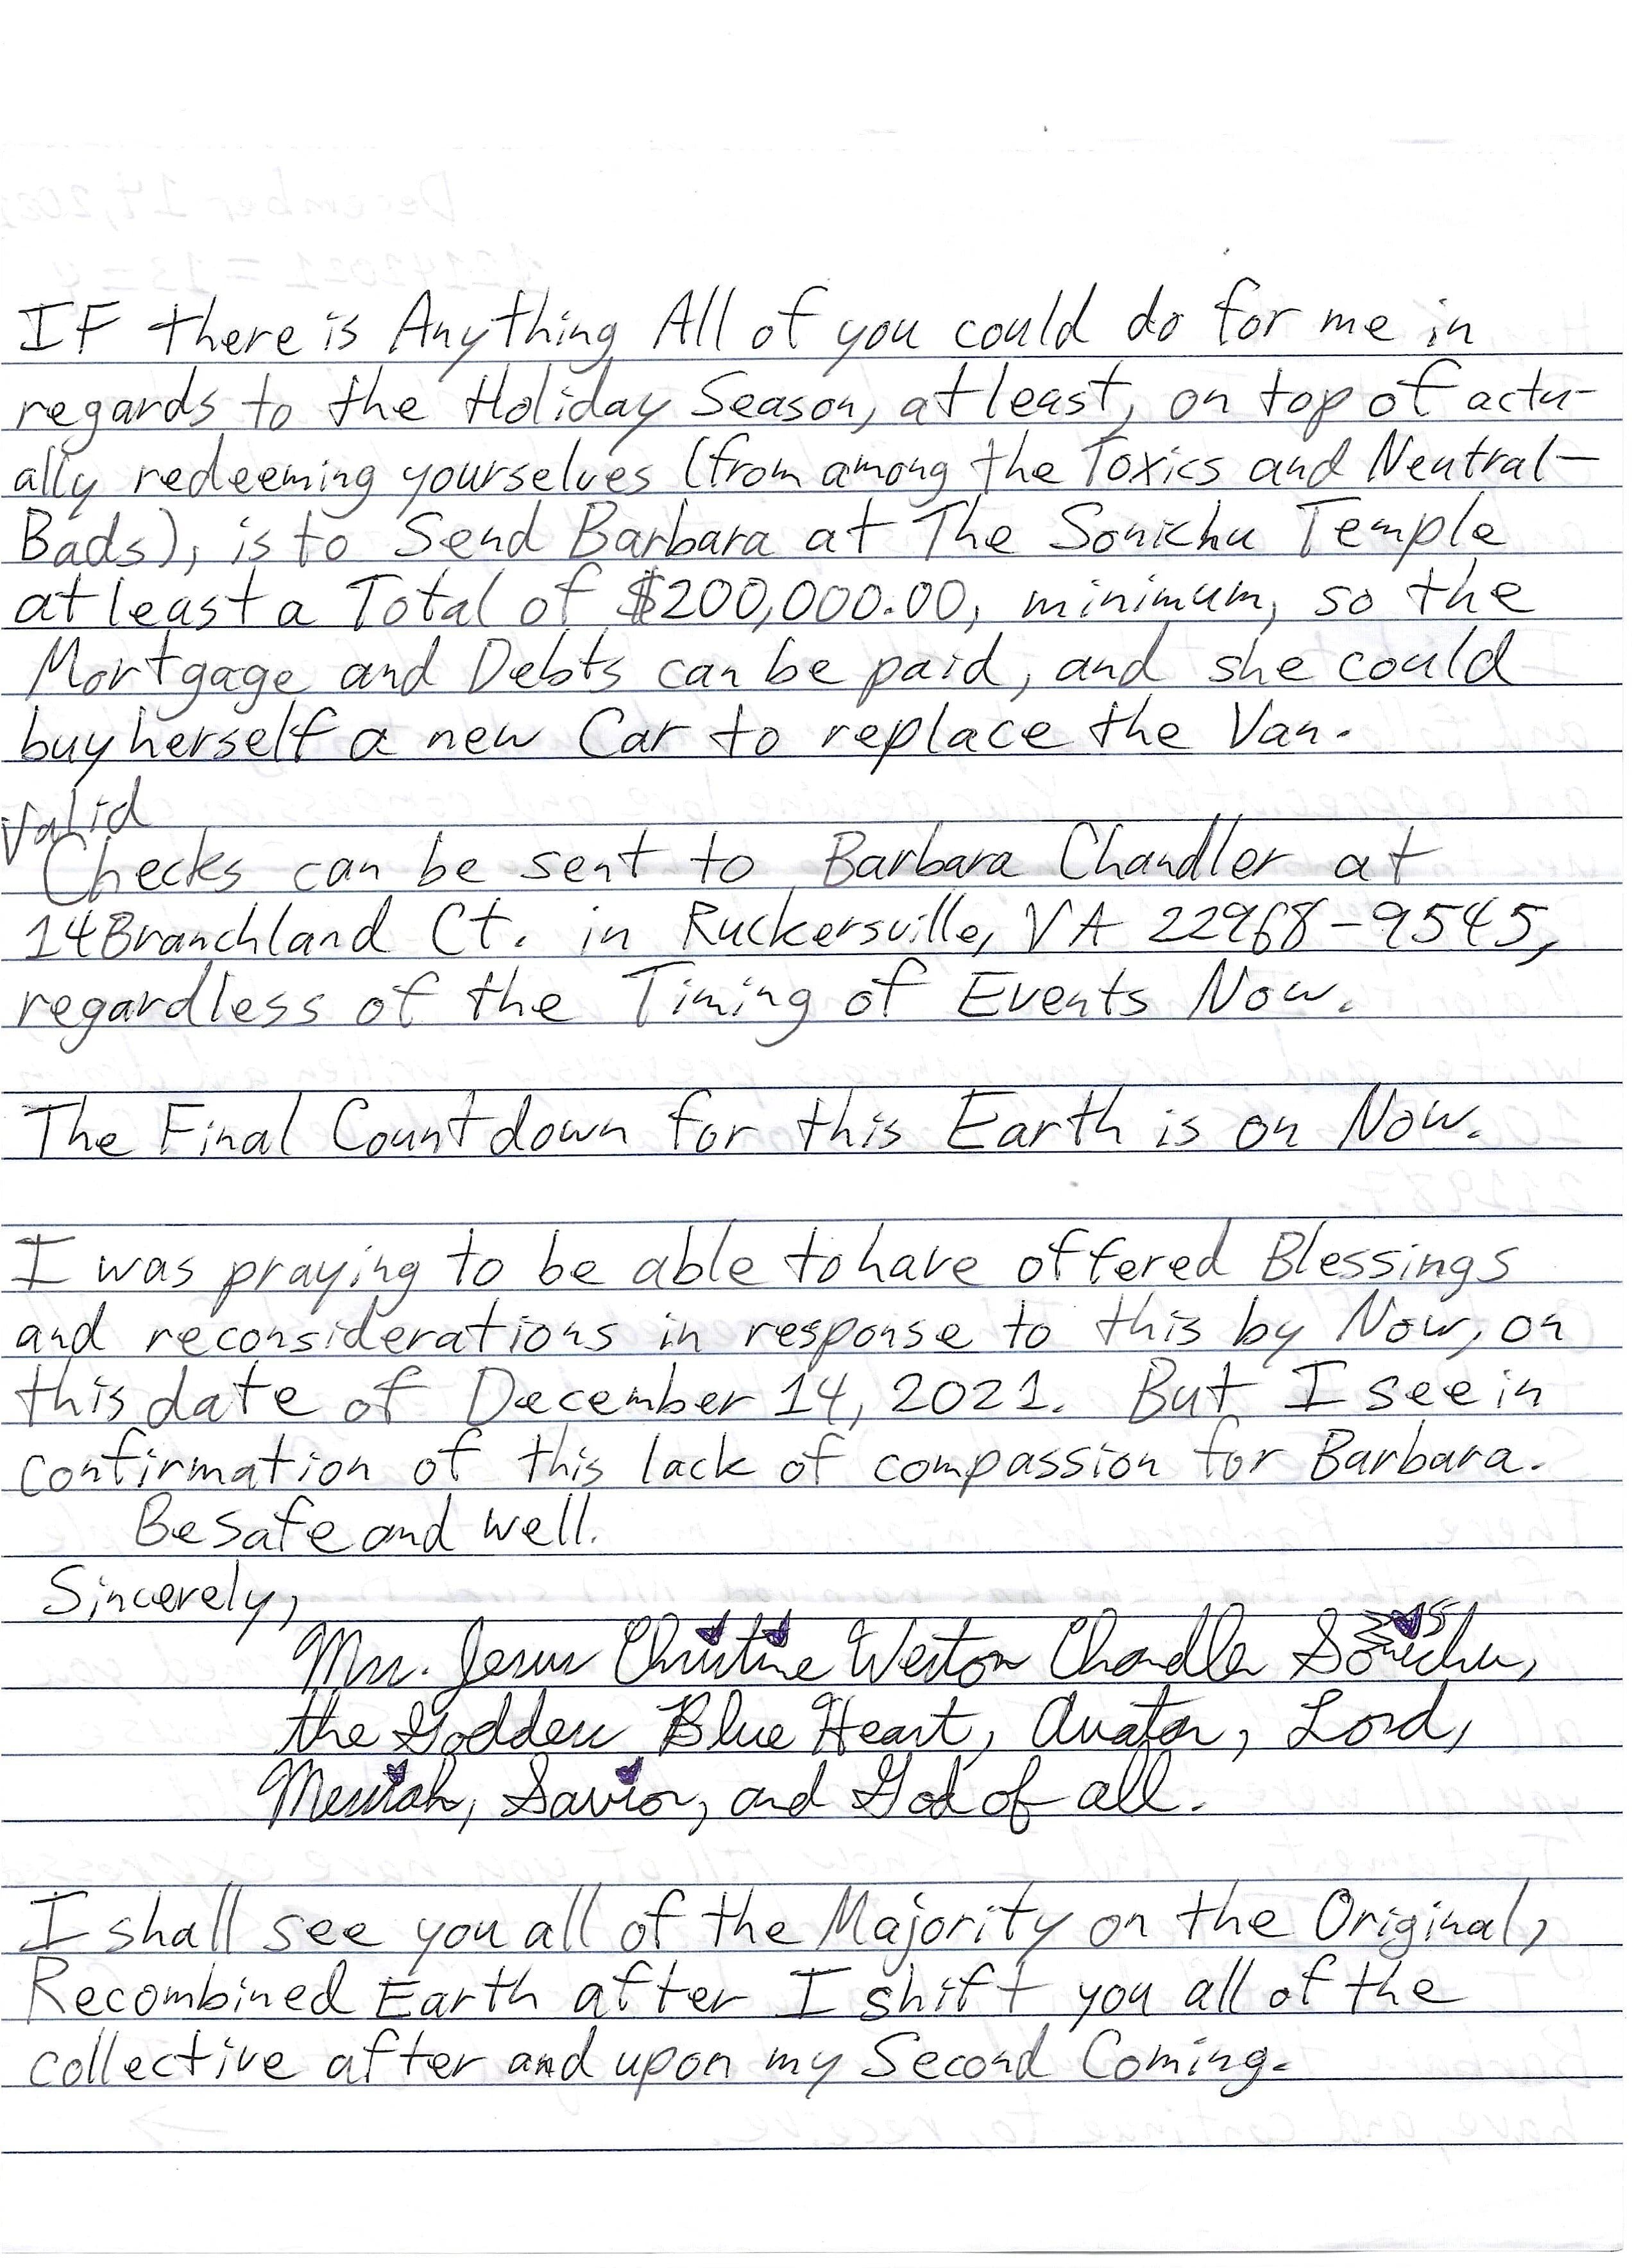 IF there is Anything All of you could do for me in
regards to the Holiday Season, at least, on top of actu-
ally redeeming yourselves (from among the Toxics and Neutral-
Bads), is to Send Barbara at The Sonichu Temple
at least a Total of $200,000.00, minimum, so the
Mortgage and Debts can be paid, and she could
buy herself a new Car to replace the Van.
Valid
Checks can be sent to Barbara Chandler at
14 Branchland Ct. in Ruckersville, VA 22968-9545,
regardless of the Timing of Events Now.
The Final Countdown for this Earth is on Now.
I was praying to be able to have offered Blessings
and reconsiderations in response to this by Now, on
this date of December 14, 2021. But I see in
confirmation of this lack of compassion for Barbara.
Be safe and well.
Sincerely,
Mrs. Jesus Christine Weston Chandler Sonichu,
the Goddess Blue Heart, Avatar, Lord,
Messiah, Savior, and God of all.
I shall see you all of the Majority on the Original,
Recombined Earth after I shift you all of the
collective after and upon my Second Coming.